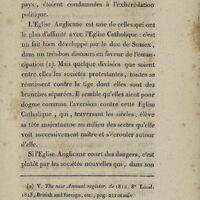 pays, étoient condamnées à l'exhérédation
politique.
L'Eglise Anglicane est une de celles qui ont
le plus d'affinité avec l'Eglise Catholique : c'est
un fait bien développé par le duc de Sussex,
dans un très-bon discours en faveur de l'éman-
cipation (2). Mais quelque divisées que soient
entre elles les sociétés protestantes, toutes se
réunissent contre la tige dont elles sont des
branches séparées. Il semble qu'elles aient pour
dogme commun l'aversion contre cette Eglise
Catholique, qui, traversant les siècles, élève
sa tête majestueuse au milieu de sectes qu'elle
voit successivement naître et s'écrouler autour
d'elle.
Si l'Eglise Anglicane court des dangers, c'est
plutôt par les sociétés nouvelles qui, dans son
(2) V. The new Annual register, de 1812, 8° Lond.
1813, British and foreign, etc., pag. 211 et suiv.